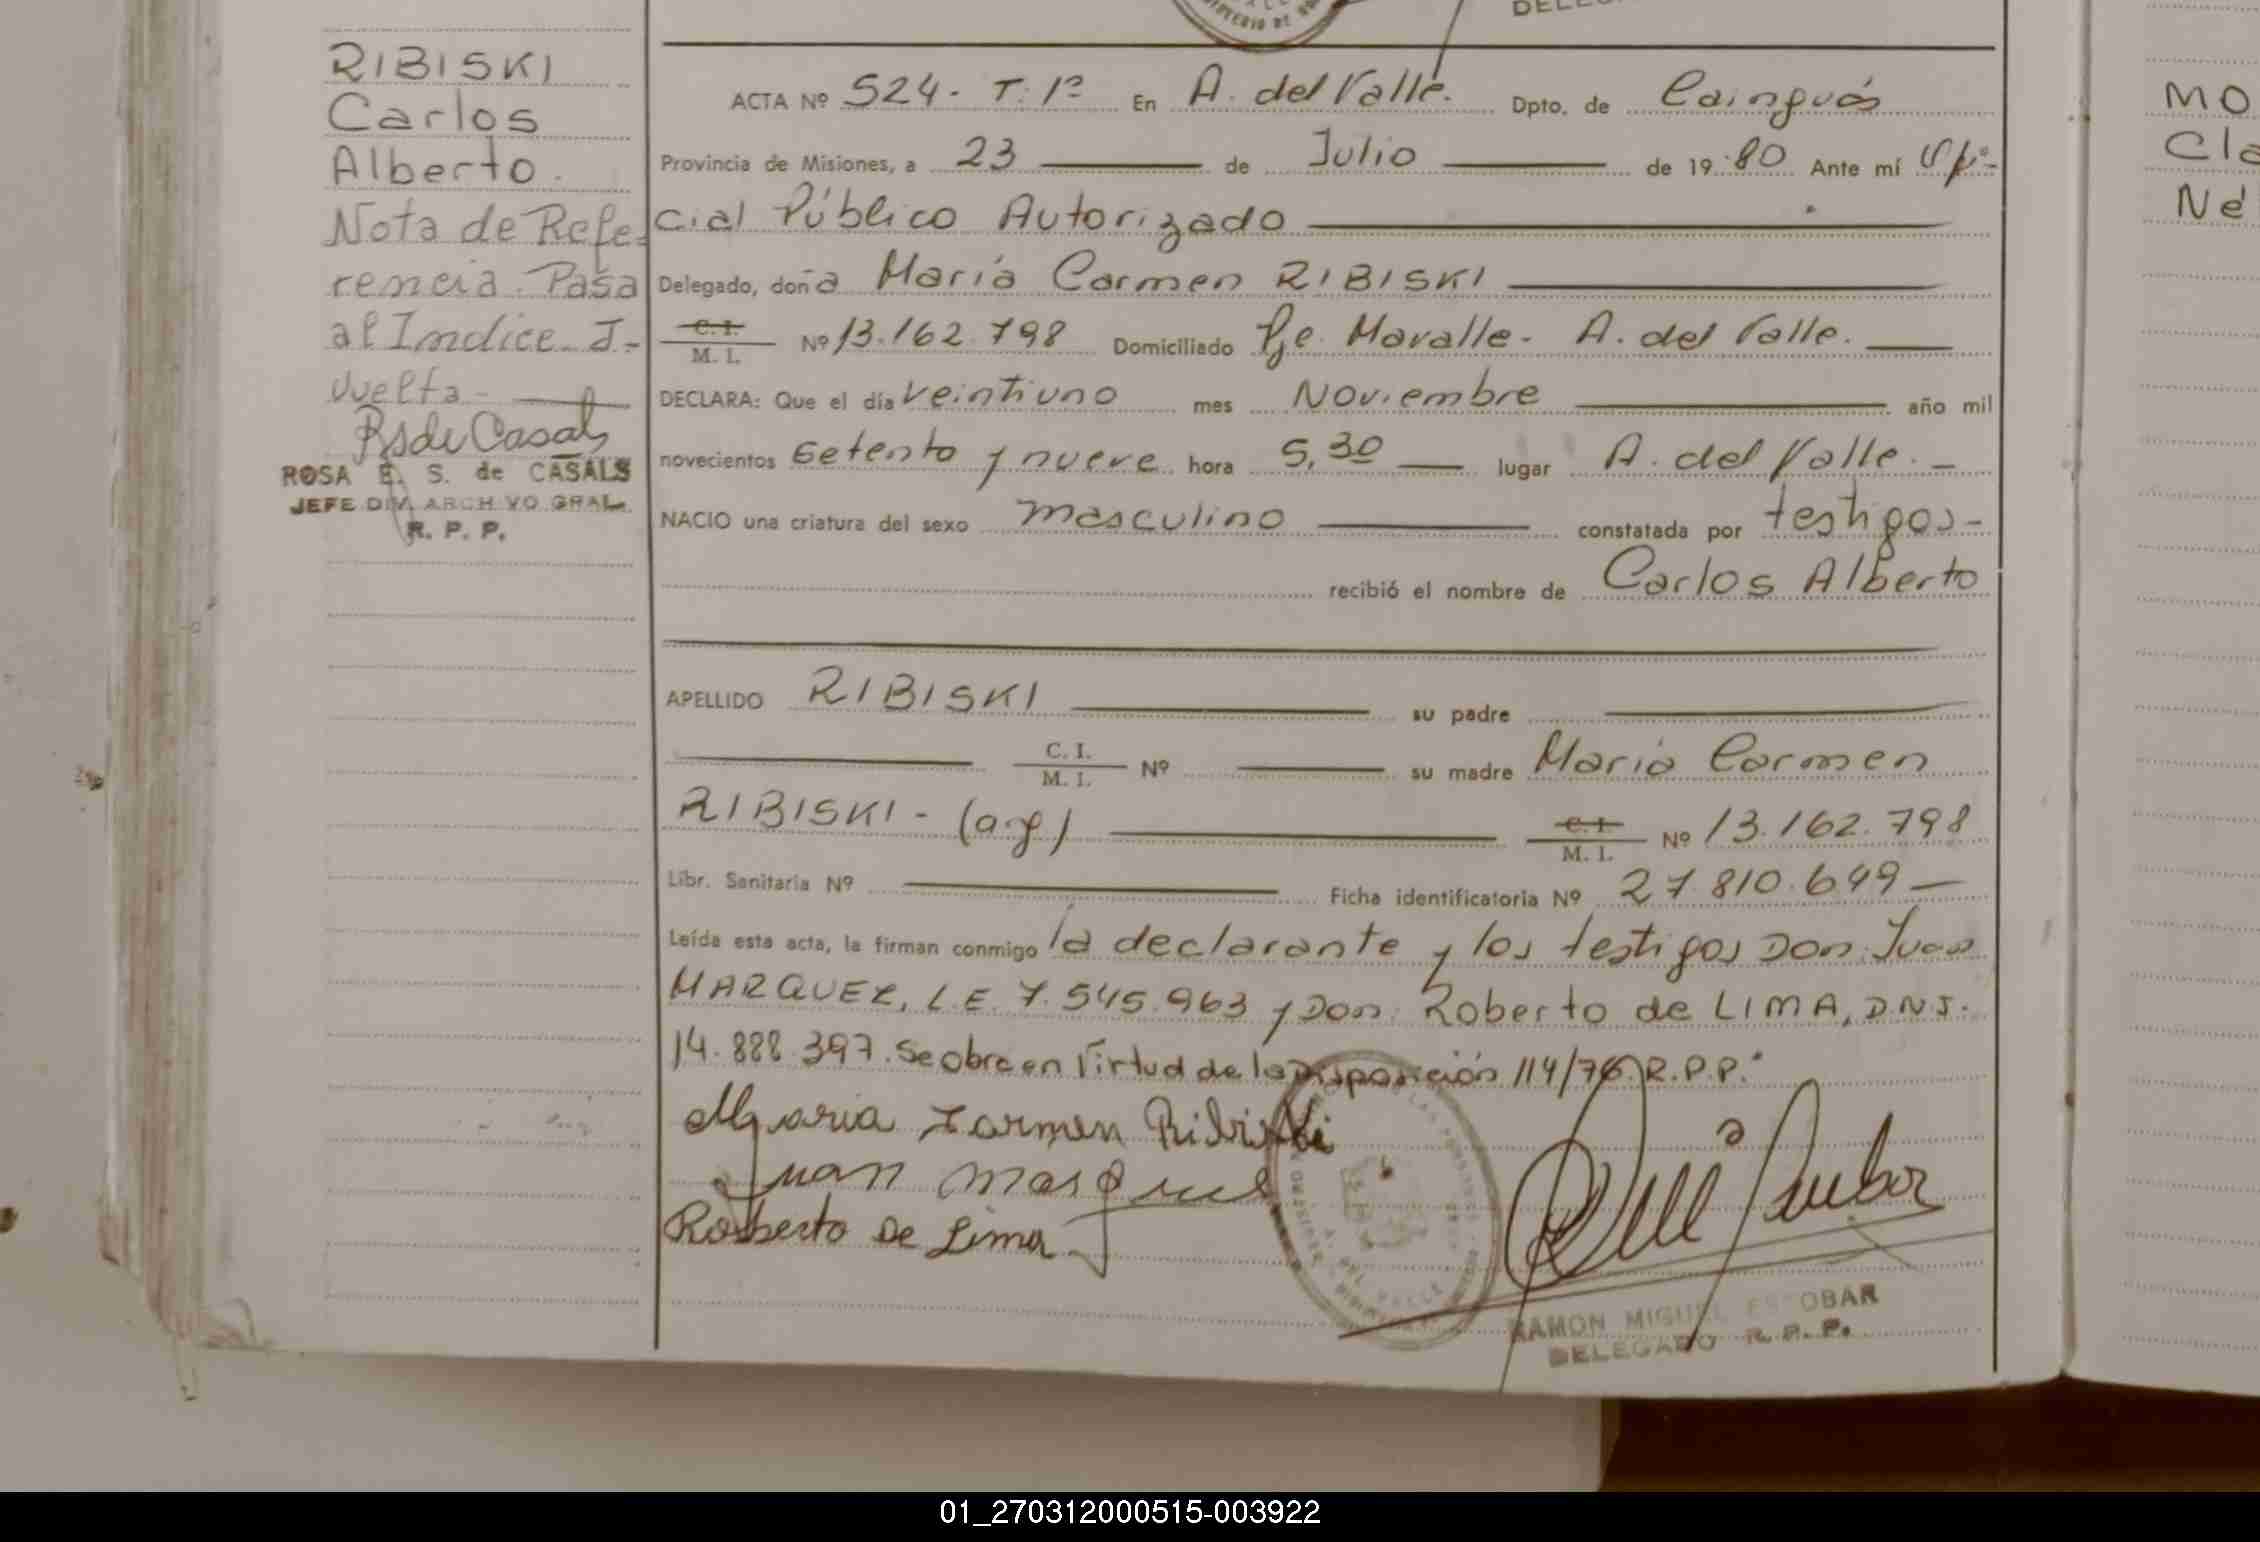 DELEG
RIBISKI
Carlos
Alberto.
Nota de Refe-
rencia. Pasa
al Indice J-
vuelta-
RSdeCasals
ROSA E. S. de CASALS
JEFE DIV. ARCHIVO GRAL.
R. P. P.
ACTA Nº 524. T: 1º En A. del Valle. Dpto. de Cainguás
Provincia de Misiones, a 23 de Julio de 19 80 Ante mí Ofi-
cial Público Autorizado
Delegado, doña Maria Carmen RIBISKI
C. I.
M. I. Nº 13.162.798 Domiciliado Pje. Mavalle. A. del Valle.
DECLARA: Que el día veintiuno mes Noviembre año mil
novecientos setenta y nueve hora 5,30 lugar A. del Valle.-
NACIO una criatura del sexo masculino constatada por testigos-
recibió el nombre de Carlos Alberto
APELLIDO RIBISKI su padre
C. I.
M. I. Nº su madre Maria Carmen
RIBISKI - (arg) C. I.
M. I. Nº 13.162.798
Libr. Sanitaria Nº Ficha identificatoria Nº 27.810.649-
Leída esta acta, la firman conmigo la declarante y los testigos Don: Juan
MARQUEZ, L.E. 7.545.963 y Don: Roberto de LIMA, D.N.I.
14.888.397. Se obra en Virtud de la Disposición 114/76. R.P.P.
Maria Carmen Ribiski
Juan Marques
Roberto De Lima
A. DEL VALLE
RAMON MIGUEL ESCOBAR
DELEGADO R. P. P.
MO
Cla
Né
01_270312000515-003922